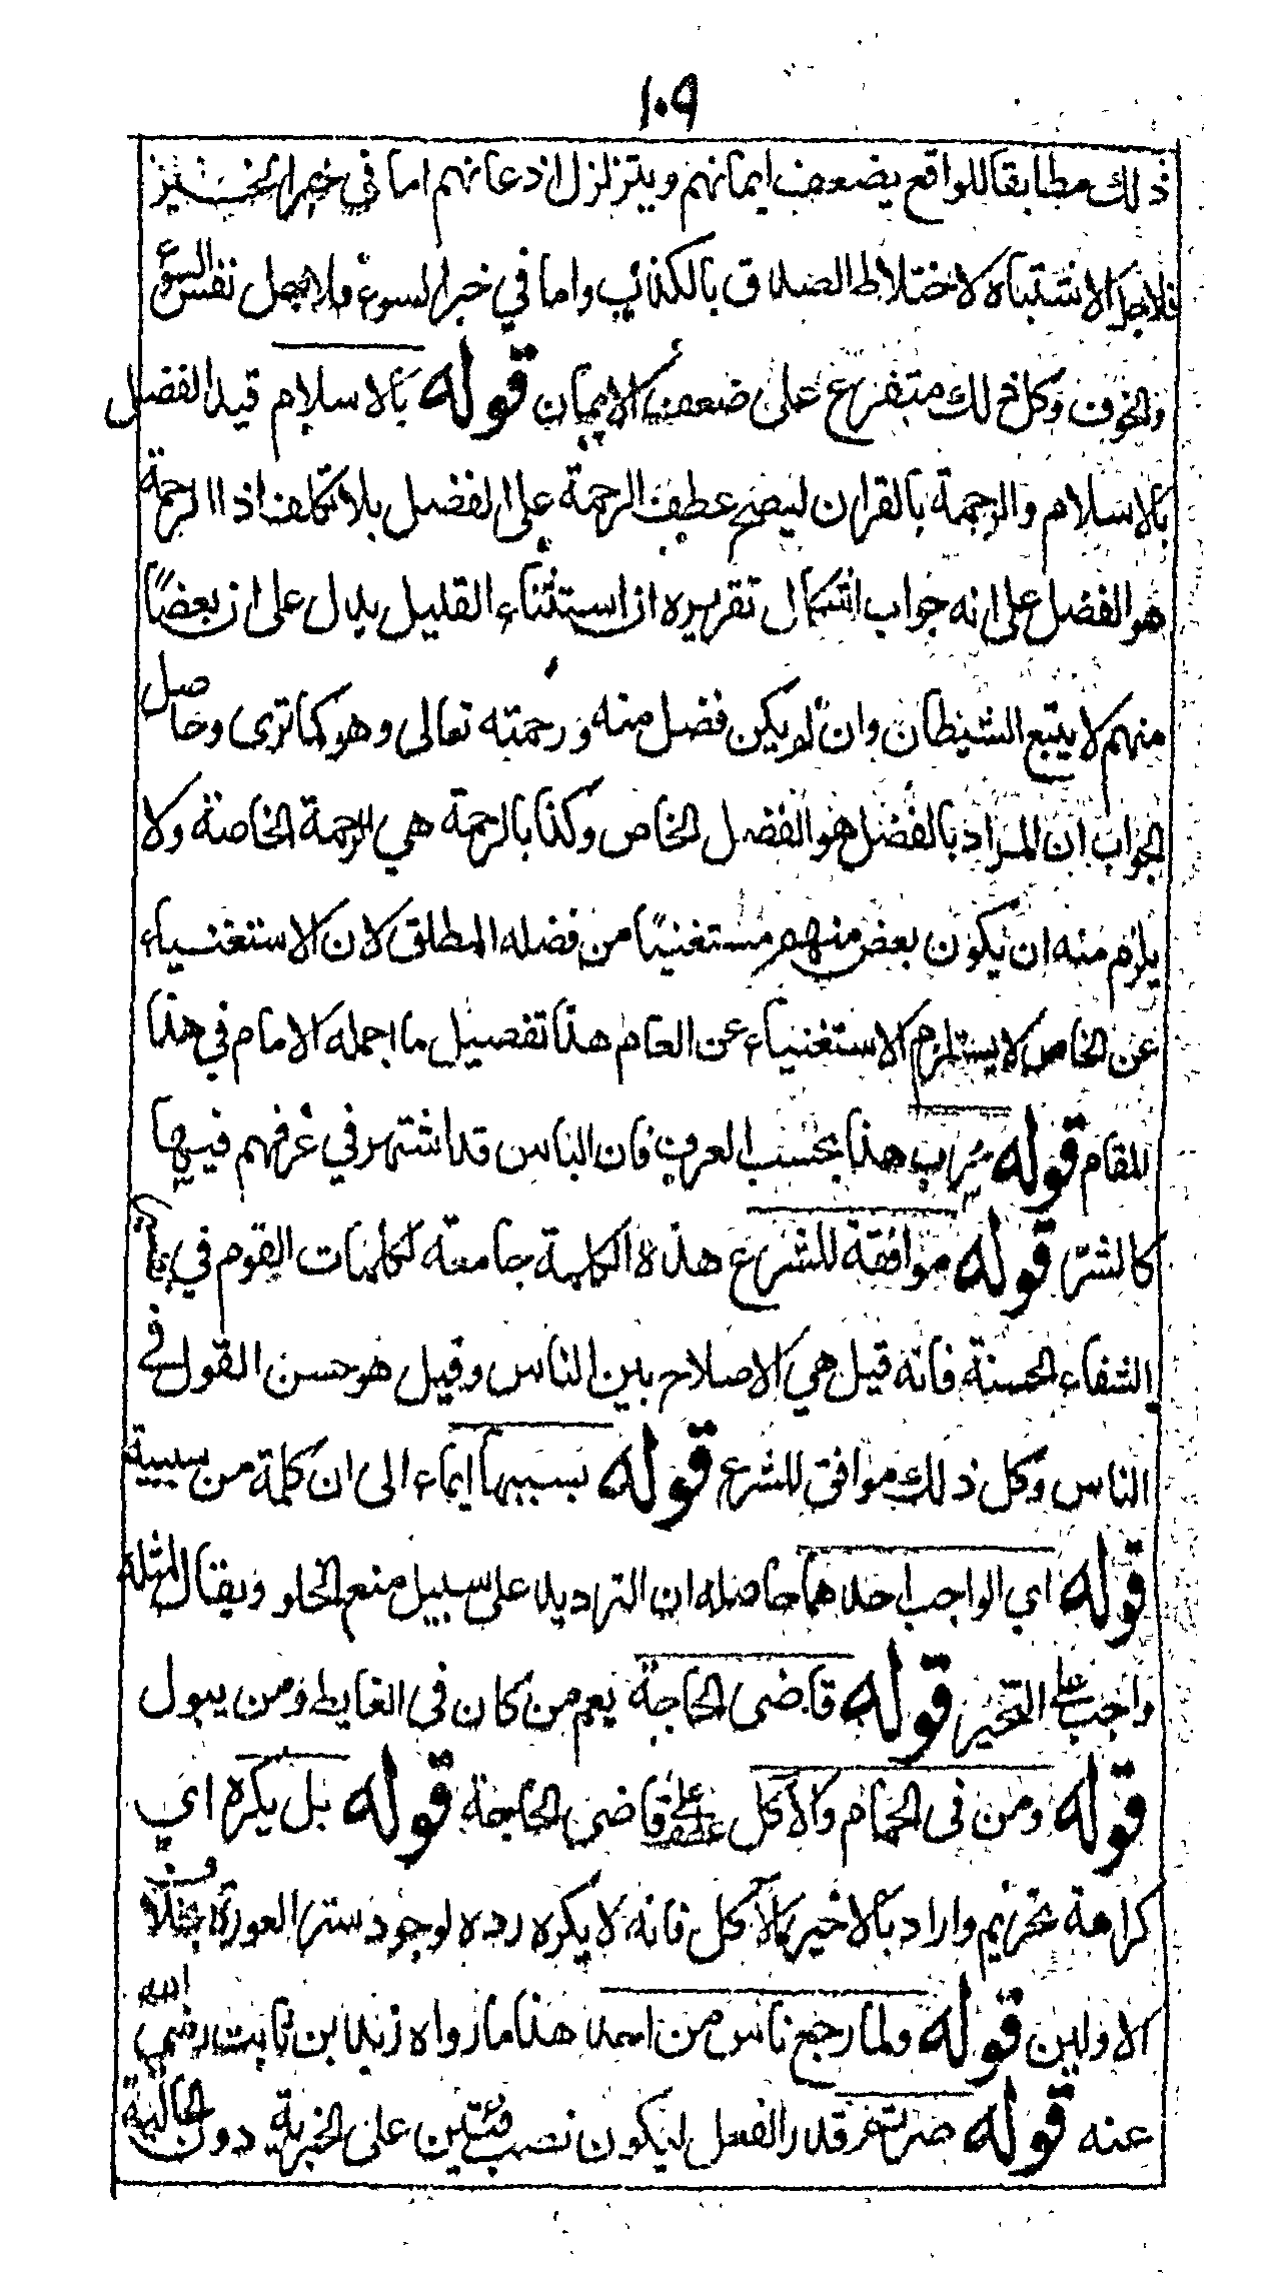 ١٠٩
ذلك مطابقا للواقع يضعف ايمانهم ويتزلزل اذعانهم اما في خبر الخير
فلاجل الاشتباه لاختلاط الصادق بالكاذب واما في خبر السوء فلاجل نفس السوء
والخوف وكل ذلك متفرع على ضعف الايمان قوله بالاسلام قيد الفضل
بالاسلام والرحمة بالقران ليصح عطف الرحمة على الفضل بلا تكلف اذ الرحمة
هو الفضل على انه جواب اشكال تقريره ان استثناء القليل يدل على ان بعضًا
منهم لا يتبع الشيطان وان لم يكن فضل منه ورحمته تعالى وهو كما ترى وحاصل
الجواب ان المراد بالفضل هو الفضل الخاص وكذا بالرحمة هي الرحمة الخاصة ولا
يلزم منه ان يكون بعض منهم مستغنيًا من فضله المطلق لان الاستغنياء
عن الخاص لا يستلزم الاستغنياء عن العام هذا تفصيل ما اجمله الامام في هذا
المقام قوله شرب هذا بحسب العرف فان الناس قد اشتهر في عرفهم فيها
كالشر قوله موافقة للشرع هذه الكلمة جامعة لكلمات القوم في
الشفاء الحسنة فانه قيل هي الاصلاح بين الناس وقيل هو حسن القول في
الناس وكل ذلك موافق للشرع قوله بسببها ايماء الى ان كلمة من سببية
قوله اي الواجب احدهما حاصله ان الترديد على سبيل منع الخلو ويقال لمثله
واجب على التخير قوله قاضى الحاجة يعم من كان في الغايط ومن يبول
قوله ومن فى الحمام والاكل عطف على قاضى الحاجة قوله بل يكره اي
كراهة تحريم واراد بالاخير الاكل فانه لا يكره رده لوجود ستر العورة فيه بخلاف
الاولين قوله ولما رجع ناس من احد هذا ما رواه زيد بن ثابت رضي الله
عنه قوله صرتم قدر الفعل ليكون نصب فئتين على الخبرية دون الحالية